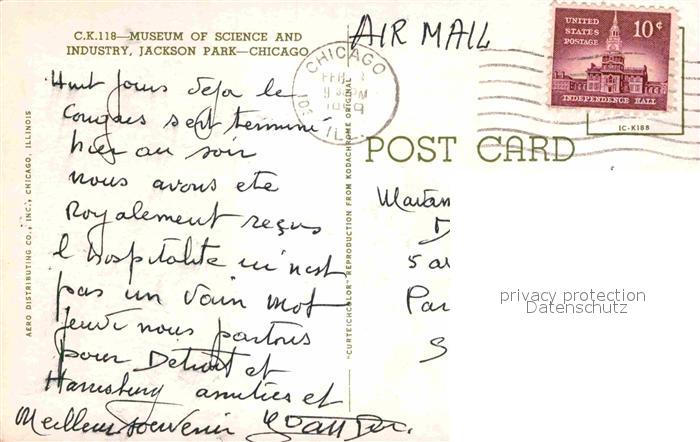 C.K.118—MUSEUM OF SCIENCE AND
INDUSTRY, JACKSON PARK—CHICAGO
AIR MAIL
CHICAGO
FEB
PM
ILL
UNITED
STATES
POSTAGE
10¢
INDEPENDENCE HALL
IC-K188
POST CARD
AERO DISTRIBUTING CO., INC., CHICAGO, ILLINOIS
"CURTEICHCOLOR" REPRODUCTION FROM KODACHROME ORIGINAL
Huit jours deja le
Congres s'est terminé
hier au soir
nous avons ete
Royalement reçus
l'hospitalite ici n'est
pas un vain mot
Jeudi nous partons
pour Detroit et
amities et
Meilleur souvenir
Madam
D
5 a
Par
privacy protection
Datenschutz